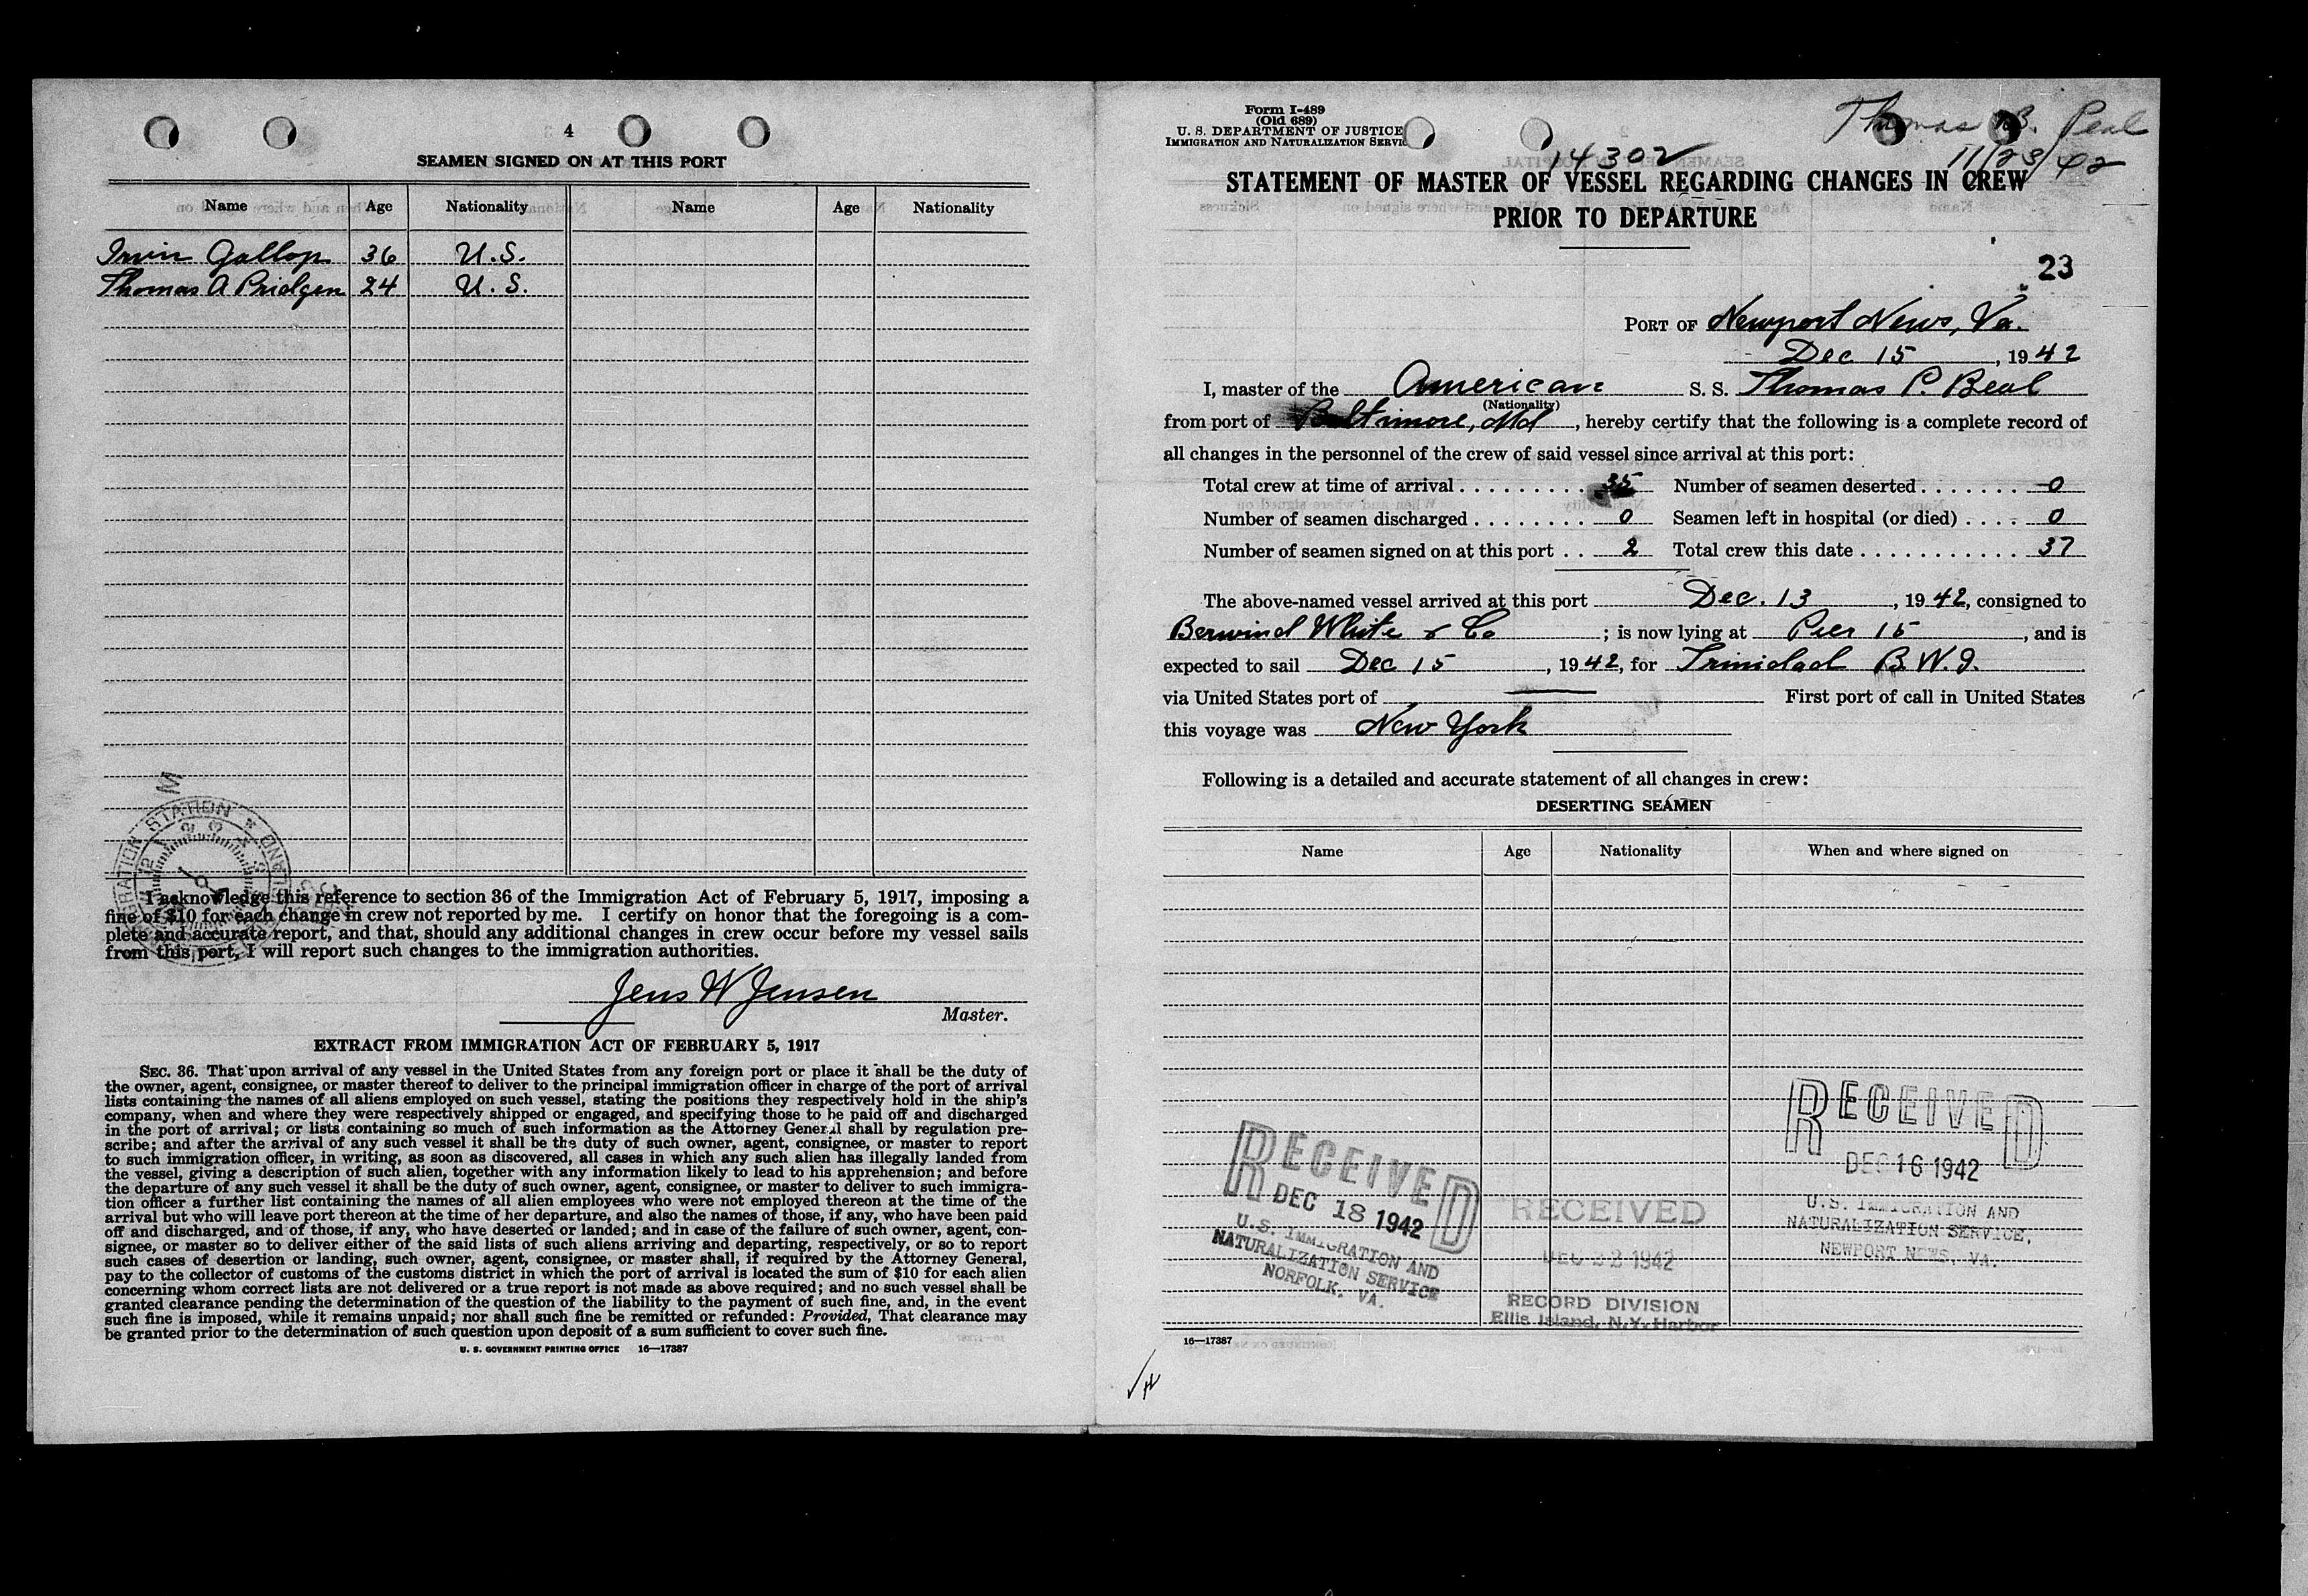 4
SEAMEN SIGNED ON AT THIS PORT
Name Age Nationality Name Age Nationality
Irvin Gallop 36 U.S.
Thomas A Pridgen 24 U.S.
I acknowledge this reference to section 36 of the Immigration Act of February 5, 1917, imposing a
fine of $10 for each change in crew not reported by me. I certify on honor that the foregoing is a com-
plete and accurate report, and that, should any additional changes in crew occur before my vessel sails
from this port, I will report such changes to the immigration authorities.
Jens W Jensen
Master.
EXTRACT FROM IMMIGRATION ACT OF FEBRUARY 5, 1917
SEC. 36. That upon arrival of any vessel in the United States from any foreign port or place it shall be the duty of
the owner, agent, consignee, or master thereof to deliver to the principal immigration officer in charge of the port of arrival
lists containing the names of all aliens employed on such vessel, stating the positions they respectively hold in the ship's
company, when and where they were respectively shipped or engaged, and specifying those to be paid off and discharged
in the port of arrival; or lists containing so much of such information as the Attorney General shall by regulation pre-
scribe; and after the arrival of any such vessel it shall be the duty of such owner, agent, consignee, or master to report
to such immigration officer, in writing, as soon as discovered, all cases in which any such alien has illegally landed from
the vessel, giving a description of such alien, together with any information likely to lead to his apprehension; and before
the departure of any such vessel it shall be the duty of such owner, agent, consignee, or master to deliver to such immigra-
tion officer a further list containing the names of all alien employees who were not employed thereon at the time of the
arrival but who will leave port thereon at the time of her departure, and also the names of those, if any, who have been paid
off and discharged, and of those, if any, who have deserted or landed; and in case of the failure of such owner, agent, con-
signee, or master so to deliver either of the said lists of such aliens arriving and departing, respectively, or so to report
such cases of desertion or landing, such owner, agent, consignee, or master shall, if required by the Attorney General,
pay to the collector of customs of the customs district in which the port of arrival is located the sum of $10 for each alien
concerning whom correct lists are not delivered or a true report is not made as above required; and no such vessel shall be
granted clearance pending the determination of the question of the liability to the payment of such fine, and, in the event
such fine is imposed, while it remains unpaid; nor shall such fine be remitted or refunded: Provided, That clearance may
be granted prior to the determination of such question upon deposit of a sum sufficient to cover such fine.
U. S. GOVERNMENT PRINTING OFFICE 16—17387
Form I-489
(Old 689)
U. S. DEPARTMENT OF JUSTICE
IMMIGRATION AND NATURALIZATION SERVIC
Thomas B. Peal
11/23/42
14302
STATEMENT OF MASTER OF VESSEL REGARDING CHANGES IN CREW
PRIOR TO DEPARTURE
23
PORT OF Newport News, Va.
Dec 15, 1942
I, master of the American S. S. Thomas P. Beal
(Nationality)
from port of Baltimore, Md, hereby certify that the following is a complete record of
all changes in the personnel of the crew of said vessel since arrival at this port:
Total crew at time of arrival . . . . . . . . . 35 Number of seamen deserted . . . . . . . 0
Number of seamen discharged . . . . . . . . 0 Seamen left in hospital (or died) . . . . 0
Number of seamen signed on at this port . . 2 Total crew this date . . . . . . . . . . . . 37
The above-named vessel arrived at this port Dec. 13, 1942, consigned to
Berwind White & Co; is now lying at Pier 15, and is
expected to sail Dec 15, 1942, for Trinidad B.W.I.
via United States port of — First port of call in United States
this voyage was New York
Following is a detailed and accurate statement of all changes in crew:
DESERTING SEAMEN
Name Age Nationality When and where signed on
RECEIVED
DEC 16 1942
U.S. IMMIGRATION AND
NATURALIZATION SERVICE,
NEWPORT NEWS, VA.
RECEIVED
DEC 18 1942
U.S. IMMIGRATION AND
NATURALIZATION SERVICE
NORFOLK, VA.
RECEIVED
DEC 22 1942
RECORD DIVISION
Ellis Island, N.Y. Harbor
16—17387